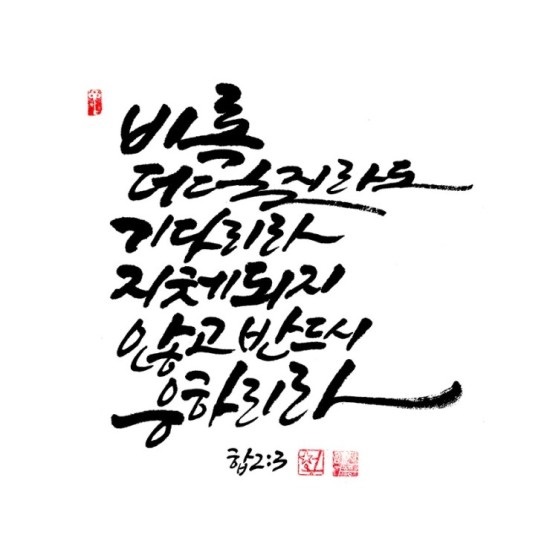 비록
더딜지라도
기다리라
지체되지
않고 반드시
응하리라
합2:3